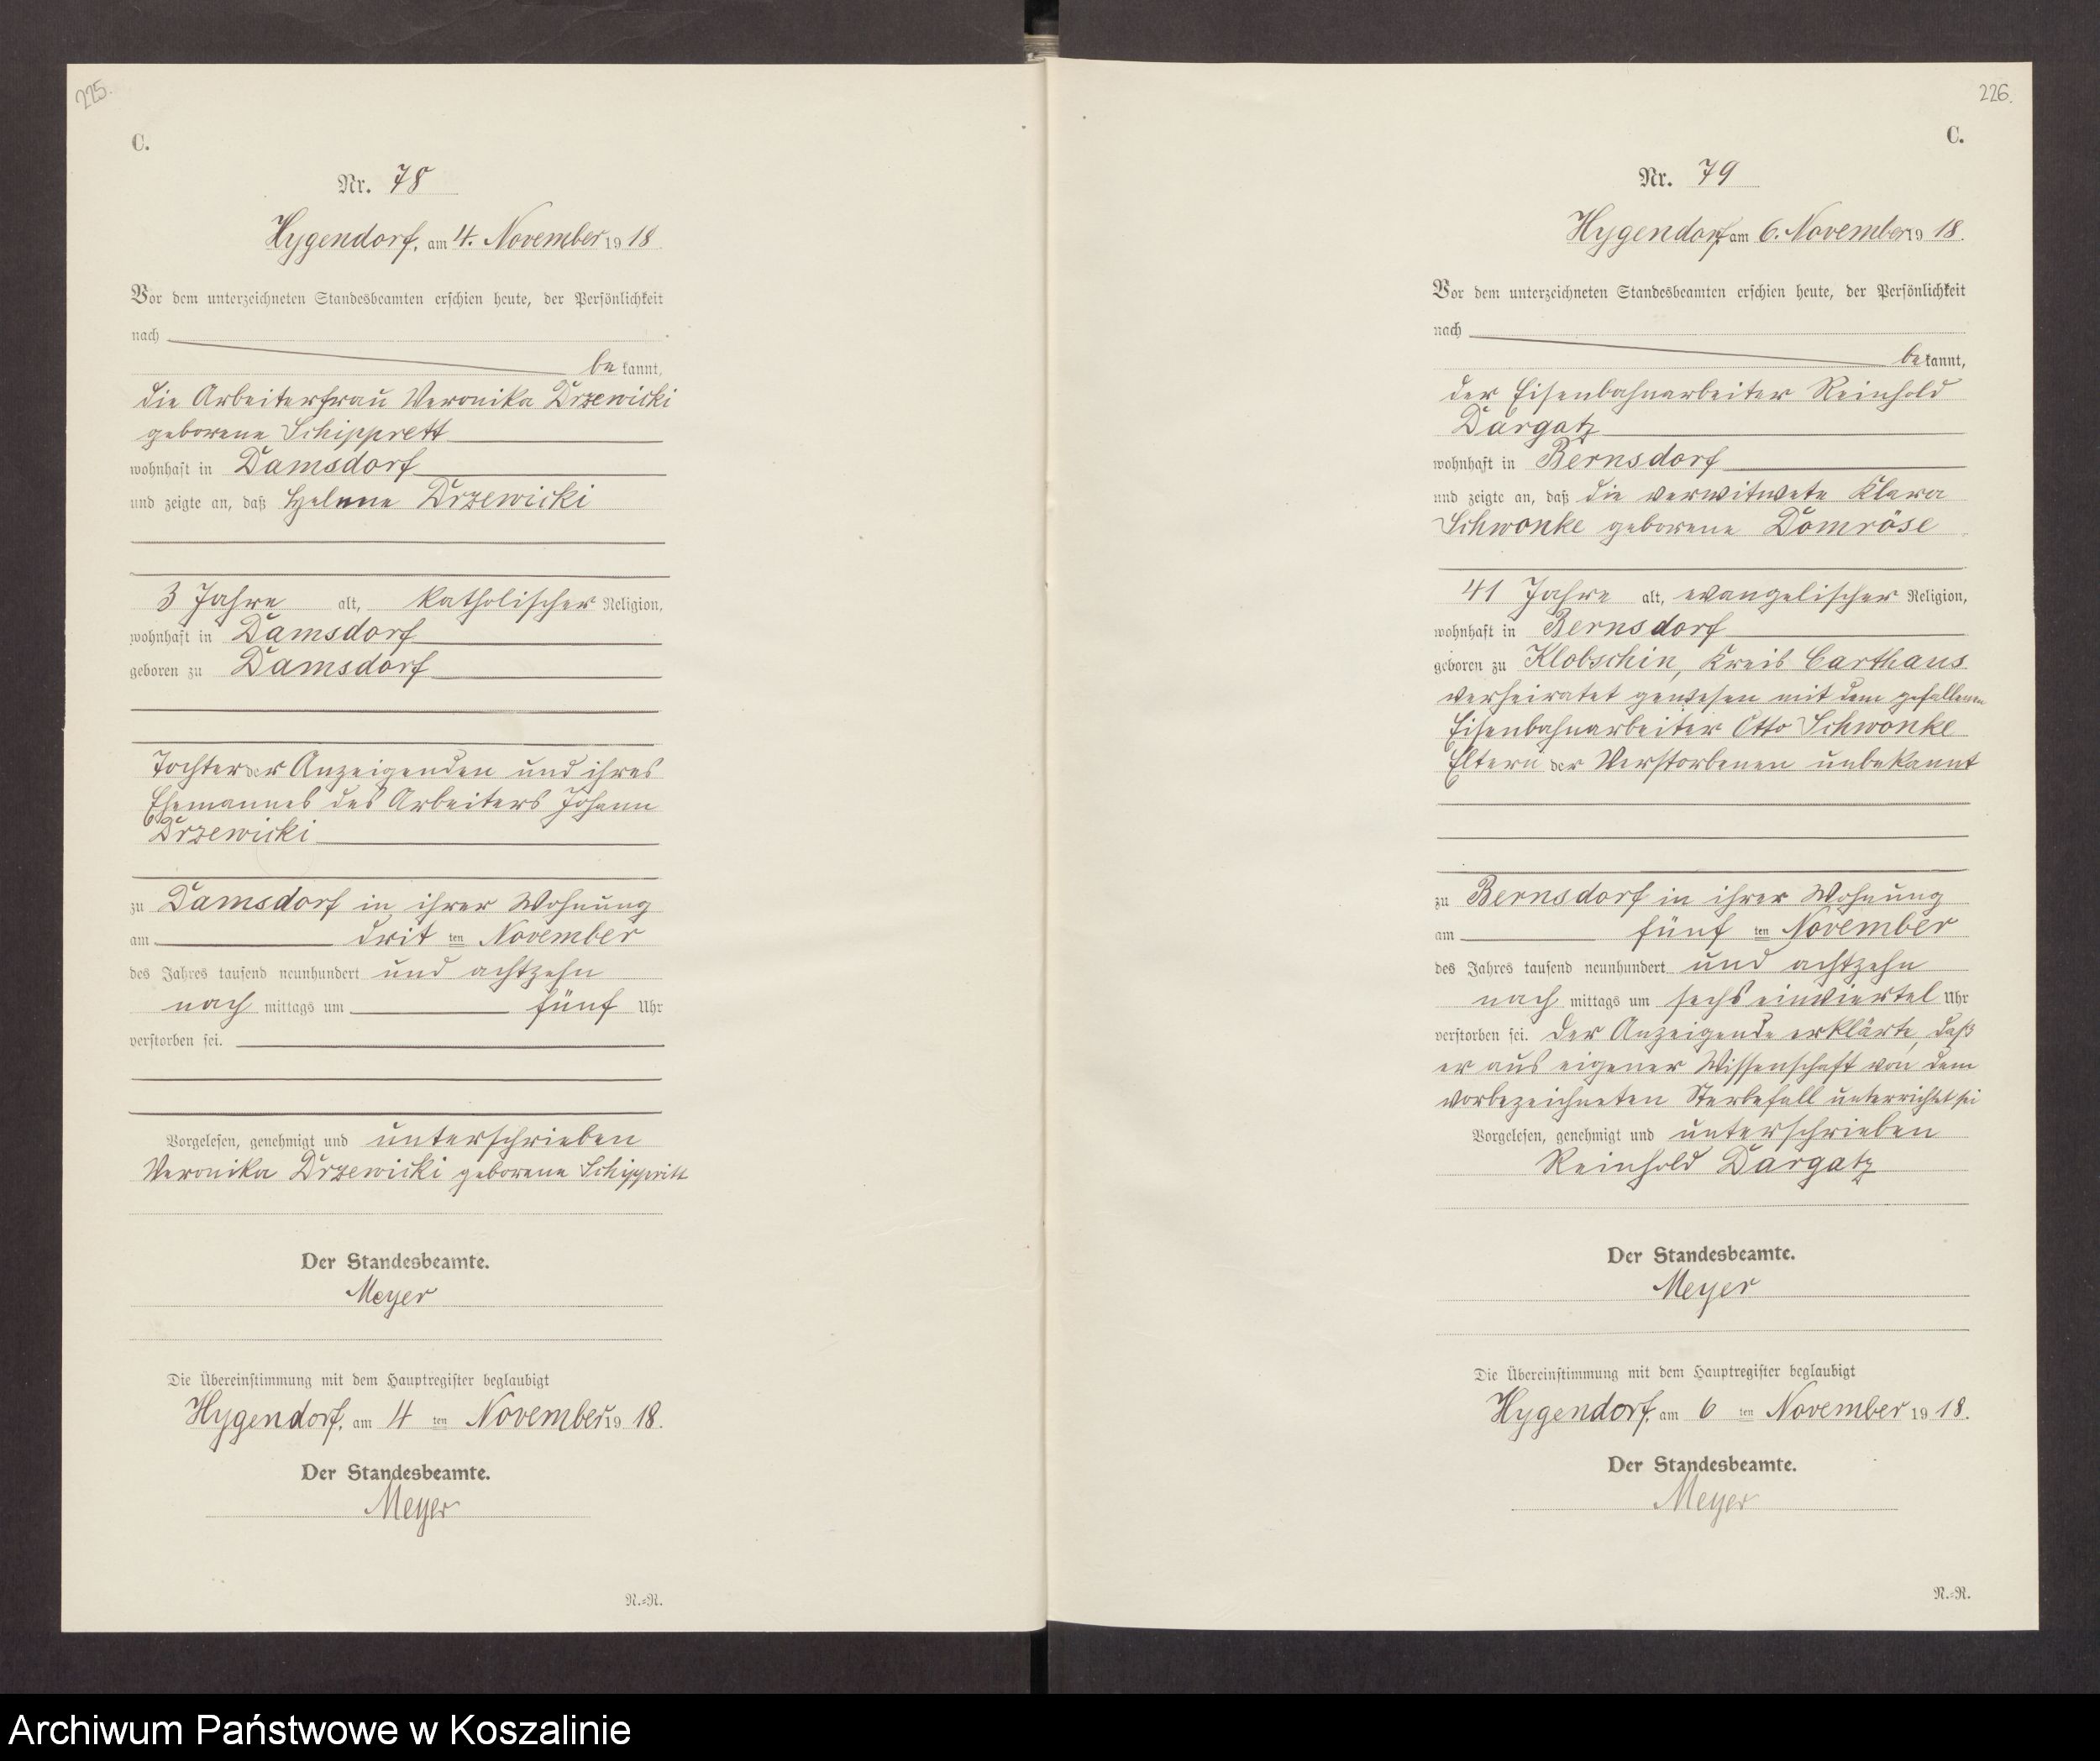 225.
C.
Nr. 78
Hygendorf, am 4. November 1918.
Vor dem unterzeichneten Standesbeamten erschien heute, der Persönlichkeit
nach
bekannt,
die Arbeiterfrau Veronika Drzewicki
geborene Schipprett
wohnhaft in Damsdorf
und zeigte an, daß Helene Drzewicki
3 Jahre alt, katholischer Religion,
wohnhaft in Damsdorf
geboren zu Damsdorf
Tochter der Anzeigenden und ihres
Ehemannes des Arbeiters Johann
Drzewicki
zu Damsdorf in ihrer Wohnung
am dritten November
des Jahres tausend neunhundert und achtzehn
nachmittags um fünf Uhr
verstorben sei.
Vorgelesen, genehmigt und unterschrieben
Veronika Drzewicki geborene Schippritt
Der Standesbeamte.
Meyer
Die Übereinstimmung mit dem Hauptregister beglaubigt
Hygendorf, am 4ten November 1918.
Der Standesbeamte.
Meyer
N.=R.
226.
C.
Nr. 79
Hygendorf, am 6. November 1918.
Vor dem unterzeichneten Standesbeamten erschien heute, der Persönlichkeit
nach
bekannt,
der Eisenbahnarbeiter Reinhold
Dargatz
wohnhaft in Bernsdorf
und zeigte an, daß die verwitwete Klara
Schwonke geborene Domröse
41 Jahre alt, evangelischer Religion,
wohnhaft in Bernsdorf
geboren zu Klobschin, Kreis Carthaus
verheiratet gewesen mit dem gefallenen
Eisenbahnarbeiter Otto Schwonke
Eltern der Verstorbenen unbekannt
zu Bernsdorf in ihrer Wohnung
am fünften November
des Jahres tausend neunhundert und achtzehn
nachmittags um sechs einviertel Uhr
verstorben sei. Der Anzeigende erklärte, daß
er aus eigener Wissenschaft von dem
vorbezeichneten Sterbefall unterrichtet sei
Vorgelesen, genehmigt und unterschrieben
Reinhold Dargatz
Der Standesbeamte.
Meyer
Die Übereinstimmung mit dem Hauptregister beglaubigt
Hygendorf, am 6ten November 1918.
Der Standesbeamte.
Meyer
N.=R.
Archiwum Państwowe w Koszalinie